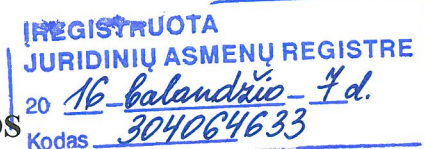 ĮREGISTRUOTA
JURIDINIŲ ASMENŲ REGISTRE
20 16 balandžio 7 d.
os Kodas 304064633